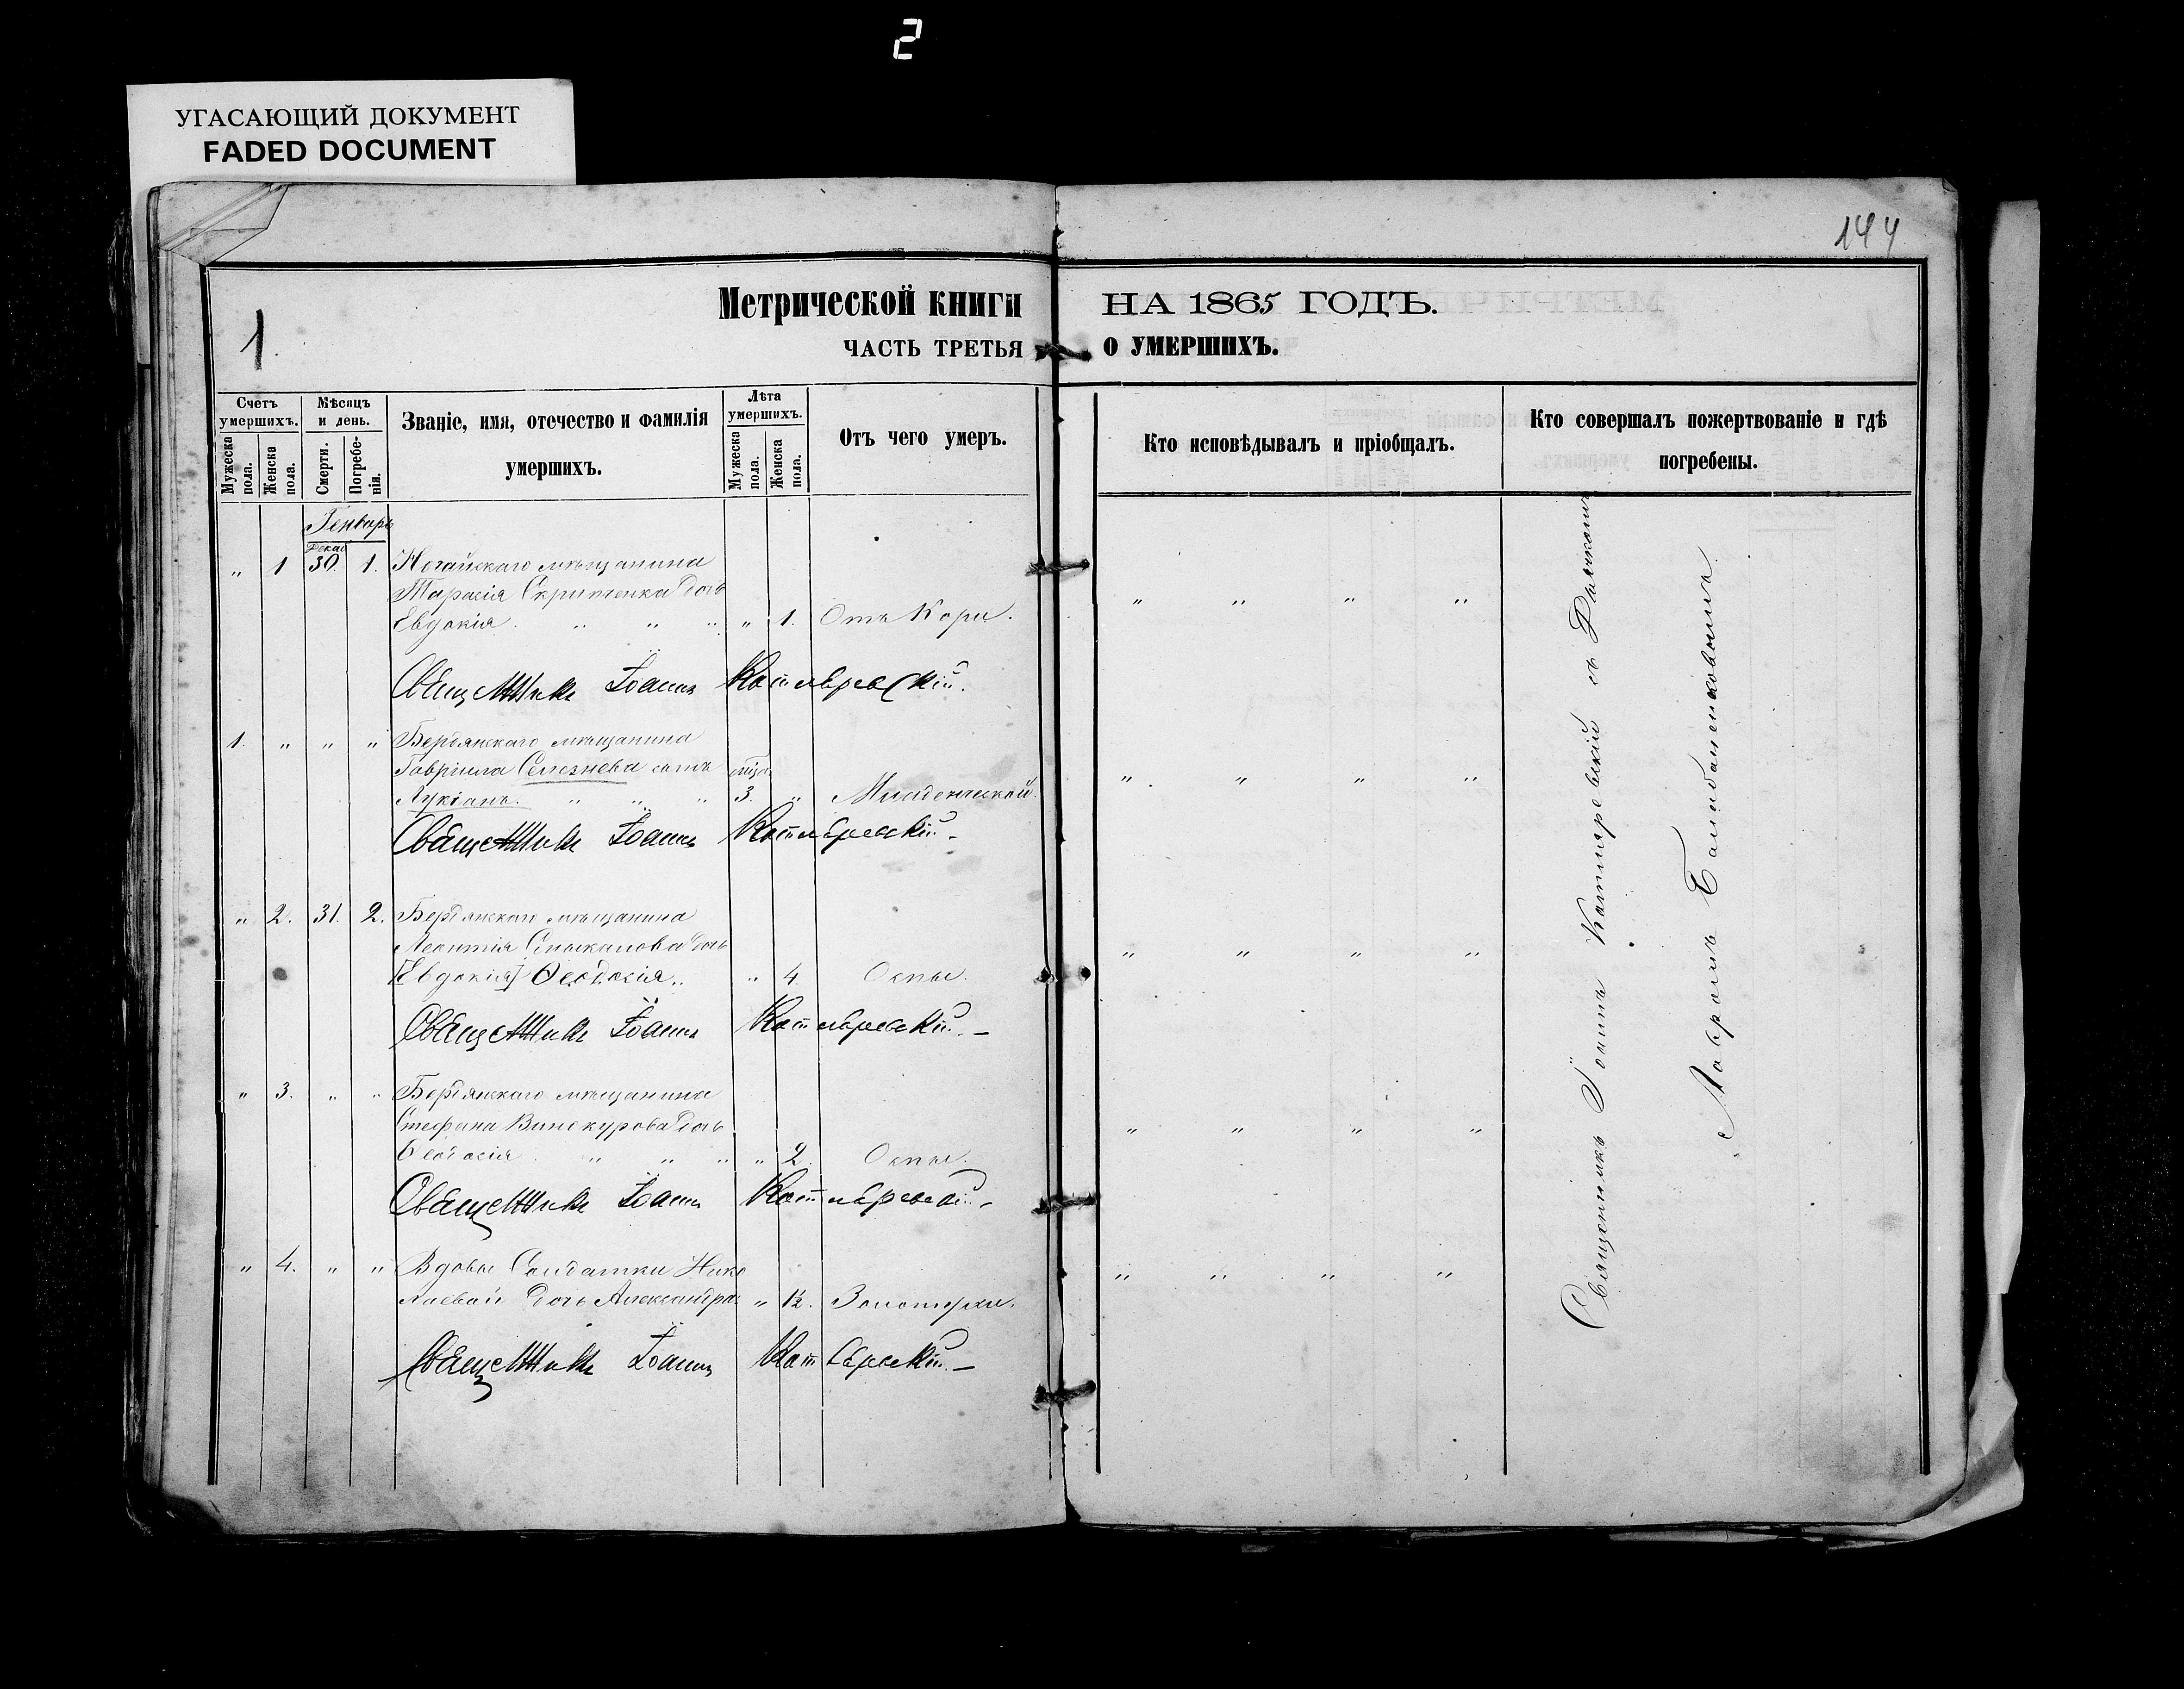 2
УГАСАЮЩИЙ ДОКУМЕНТ
FADED DOCUMENT
144
1.
Метрической книги НА 1865 ГОДЪ.
ЧАСТЬ ТРЕТЬЯ О УМЕРШИХЪ.
Счетъ умершихъ.
Мужеска пола.
Женска пола.
Мѣсяцъ и день.
Смерти.
Погребенія.
Званіе, имя, отечество и фамилія умершихъ.
Лѣта умершихъ.
Мужеска пола.
Женска пола.
Отъ чего умеръ.
Кто исповѣдывалъ и пріобщалъ.
Кто совершалъ пожертвованіе и гдѣ погребены.
Генварь
Декаб
„ 1 30. 1. Ногайскаго мѣщанина
Тарасія Скрипченка дочь
Евдокія. „ „ „ „ 1. Отъ Кори. „ „ „ „
Священникъ Іоаннъ Котляревскій.
1. „ „ „ Бердянскаго мѣщанина
Гавріила Селезнева сынъ
Лукіанъ. „ „ „ 3. „ Младенческой. „ „ „ „
Священникъ Іоаннъ Котляревскій.
„ 2. 31. 2. Бердянскаго мѣщанина
Леонтія дочь
[Евдокія] Ѳеодосія. „ „ 4. Оспы. „ „ „ „
Священникъ Іоаннъ Котляревскій.
„ 3. „ „ Бердянскаго мѣщанина
Стефана Винокурова дочь
Ѳеодосія „ „ „ „ 2. Оспы. „ „ „ „
Священникъ Іоаннъ Котляревскій.
„ 4. „ „ Вдовы Солдатки Нико
лаевой дочь Александра „ 12. Золотухи. „ „ „ „
Священникъ Іоаннъ Котляревскій.
Священникъ Іоаннъ Котляревскій съ
Лавромъ